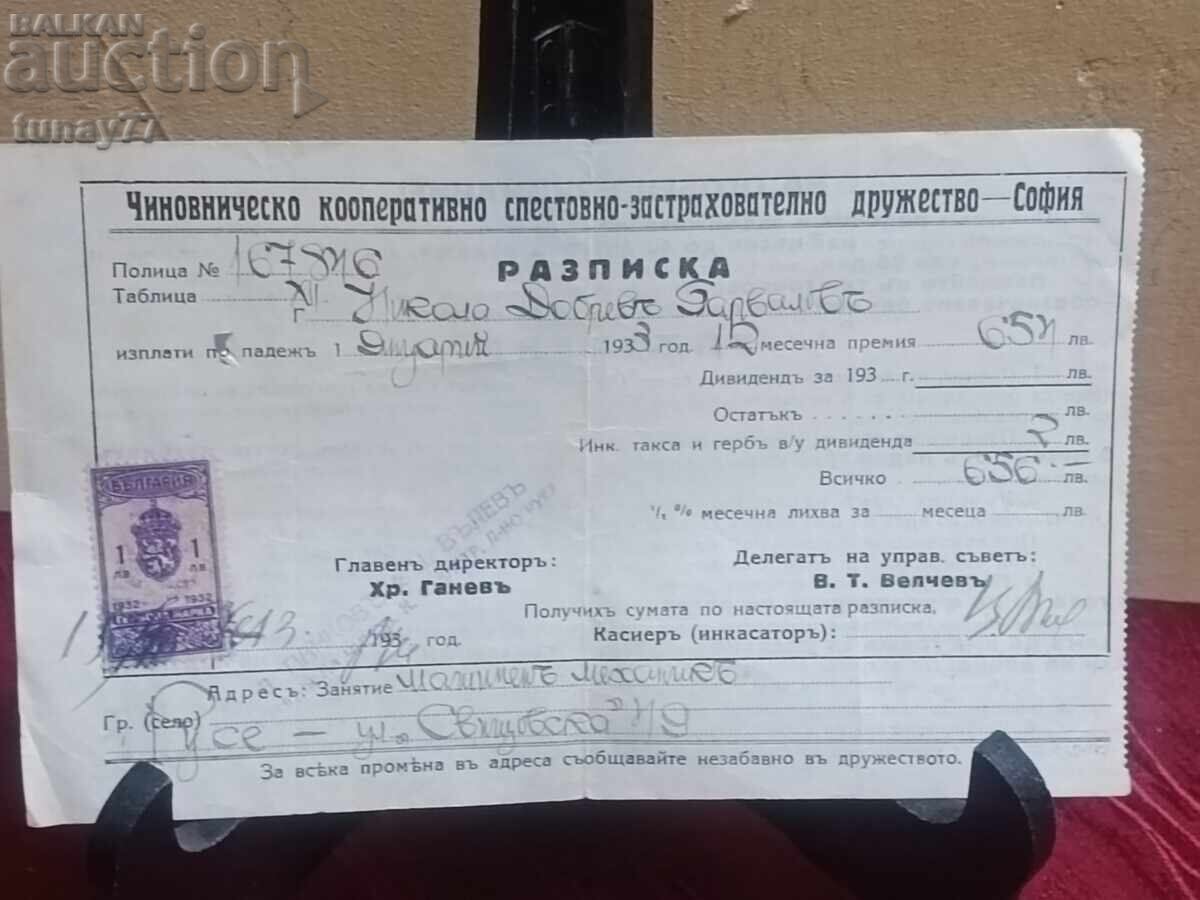 BALKAN
auction
tunay77
Чиновническо кооперативно спестовно-застрахователно дружество — София
Полица №
РАЗПИСКА
Таблица XI г. Никола Добревъ
изплати падежъ 1 Януарий 1933 год. 12 месечна премия 654 лв.
Дивидендъ за 193 г. лв.
Остатъкъ лв.
Инк. такса и гербъ в/у дивиденда 2 лв.
Всичко 656.— лв.
½ % месечна лихва за месеца лв.
БЪЛГАРИЯ
1 лв 1 лв
1932 1932
Главенъ директоръ:
Хр. Ганевъ
Делегатъ на управ. съветъ:
В. Т. Велчевъ
Получихъ сумата по настоящата разписка,
Касиеръ (инкасаторъ):
193 год.
Адресъ: Занятие Машиненъ механикъ
Гр. (село) Русе — ул. „Свищовска"
За всѣка промѣна въ адреса съобщавайте незабавно въ дружеството.